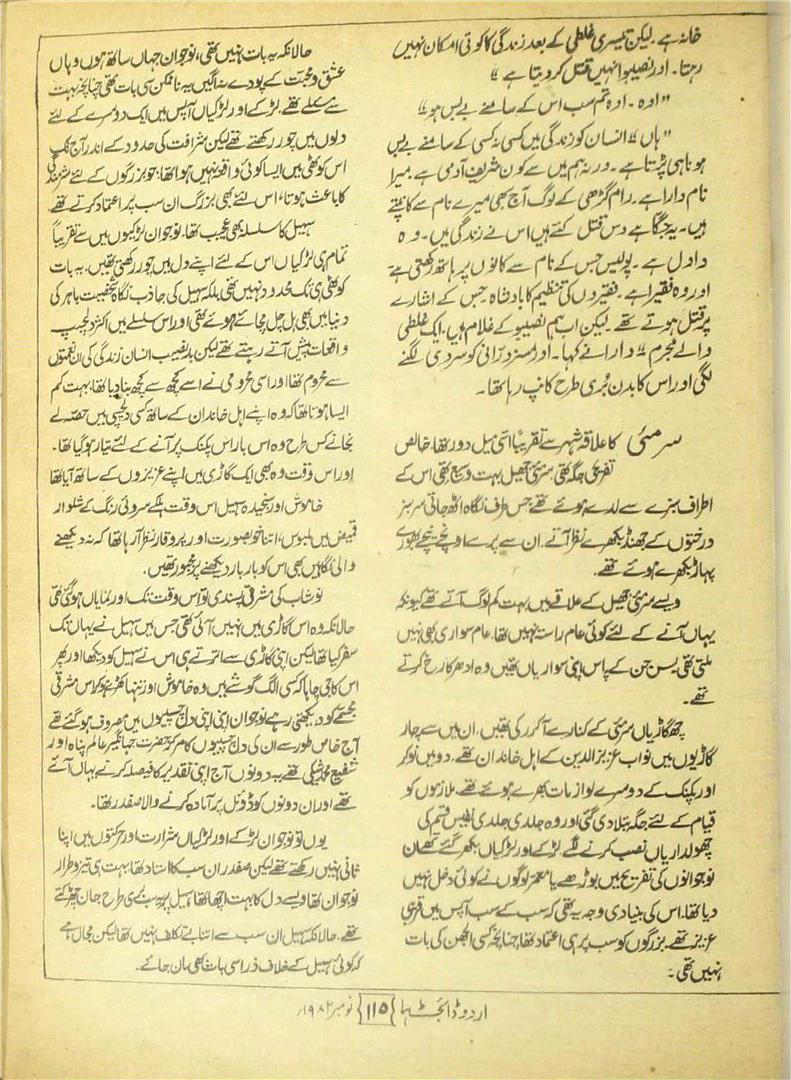 خانہ ہے۔ لیکن تیسری غلطی کے بعد زندگی کا کوئی امکان نہیں
رہتا۔ اور نصیبو انہیں قتل کر دیتا ہے"
"اوہ۔ اوہ تم سب اس کے سامنے بے بس ہو"
"ہاں" انسان کو زندگی میں کسی نہ کسی کے سامنے بے بس
ہونا ہی پڑتا ہے۔ ورنہ ہم میں سے کون شریف آدمی ہے۔ میرا
نام دارا ہے۔ رام گڑھی کے لوگ آج بھی میرے نام سے کانپتے
ہیں۔ یہ جگا ہے دس قتل کئے ہیں اس نے زندگی میں۔ وہ
دادل ہے۔ پولیس جس کے نام سے کانوں پر ہاتھ رکھتی ہے
اور وہ فقیرا ہے۔ فقیروں کی تنظیم کا بادشاہ جس کے اشارے
پر قتل ہوتے تھے۔ لیکن اب ہم نصیبو کے غلام ہیں۔ ایک غلطی
والے مجرم" دارا نے کہا۔ اور مسز درانی کو سردی لگنے
لگی اور اس کا بدن بُری طرح کانپ رہا تھا۔
سرمئی کا علاقہ شہر سے تقریباً اسّی میل دور تھا۔ خالص
تفریحی جگہ تھی، سرمئی جھیل بہت وسیع تھی اس کے
اطراف سبزے سے لدے ہوئے تھے جس طرف نگاہ اٹھ جاتی سرسبز
درختوں کے جھنڈ بکھرے نظر آتے۔ ان سے پرے اونچے نیچے بھورے
پہاڑ بکھرے ہوئے تھے۔
ویسے سرمئی جھیل کے علاقے میں بہت کم لوگ آتے تھے کیونکہ
یہاں آنے کے لئے کوئی عام راستہ نہیں تھا۔ عام سواری بھی نہیں
ملتی تھی بس جن کے پاس اپنی سواریاں تھیں وہ ادھر کا رخ کرتے
تھے۔
چھ گاڑیاں سرمئی کے کنارے آ کر رکی تھیں، ان میں سے چار
گاڑیوں میں نواب عزیز الدین کے اہل خاندان تھے۔ دو میں نوکر
اور پکنک کے دوسرے لوازمات بھرے ہوئے تھے۔ ملازموں کو
قیام کے لئے جگہ بتلا دی گئی اور وہ جلدی جلدی نفیس قسم کی
چھولداریاں نصب کرنے لگے لڑکے اور لڑکیاں بکھر گئے تھے ان
نوجوانوں کی تفریح میں بوڑھے یا معمر لوگوں نے کوئی دخل نہیں
دیا تھا۔ اس کی بنیادی وجہ یہ تھی کہ سب کے سب آپس میں قریبی
عزیز تھے۔ بزرگوں کو سب پر ہی اعتماد تھا چنانچہ کسی الجھن کی بات
نہیں تھی۔
حالانکہ یہ بات نہیں تھی، نوجوان جہاں ساتھ ہوں وہاں
عشق و محبت کے پودے نہ اگیں یہ ناممکن سی بات تھی چنانچہ بہت
سے سلسلے تھے۔ لڑکے اور لڑکیاں آپس میں ایک دوسرے کے لئے
دلوں میں چور رکھتے تھے لیکن شرافت کی حدود کے اندر آج تک
اس کوٹھی میں ایسا کوئی واقعہ نہیں ہوا تھا، جو بزرگوں کے لئے شرمندگی
کا باعث ہوتا، اس لئے بھی بزرگ ان سب پر اعتماد کرتے تھے۔
سہیل کا سلسلہ بھی عجیب تھا۔ نوجوان لڑکیوں میں سے تقریباً
تمام ہی لڑکیاں اس کے لئے اپنے دل میں چور رکھتی تھیں۔ یہ بات
کوٹھی ہی تک محدود نہیں تھی بلکہ سہیل کی جاذب نگاہ شخصیت باہر کی
دنیا میں بھی ہل چل مچائے ہوئے تھی اور اس سلسلے میں اکثر دلچسپ
واقعات پیش آتے رہتے تھے لیکن بدنصیب انسان زندگی کی ان نعمتوں
سے محروم تھا اور اسی محرومی نے اسے کچھ سے کچھ بنا دیا تھا، بہت کم
ایسا ہوتا تھا کہ وہ اپنے اہل خاندان کے ساتھ کسی دلچسپی میں حصہ لے
نجانے کس طرح وہ اس بار اس پکنک پر آنے کے لئے تیار ہو گیا تھا۔
اور اس وقت وہ بھی ایک گاڑی میں اپنے عزیزوں کے ساتھ آیا تھا
خاموش اور سنجیدہ سہیل اس وقت ہلکے سروئی رنگ کے شلوار
قمیض میں ملبوس، اتنا خوبصورت اور پر وقار نظر آ رہا تھا کہ نہ دیکھنے
والی نگاہیں بھی اس کو بار بار دیکھنے پر مجبور تھیں۔
نوشاب کی مشرقی پسندی تو اس وقت تک اور نمایاں ہو گئی تھی
حالانکہ وہ اس گاڑی میں نہیں آئی تھی جس میں سہیل نے یہاں تک
سفر کیا تھا لیکن اپنی گاڑی سے اترتے ہی اس نے سہیل کو دیکھا اور پھر
اس کا جی چاہا کسی الگ گوشے میں وہ خاموش اور تنہا کھڑے ہو کر اس مشرقی
مجسمے کو دیکھتی رہے نوجوان اپنی اپنی دل چسپیوں میں مصروف ہو گئے تھے
آج خاص طور سے ان کی دل چسپیوں کا مرکز حضرت جہانگیر عالم پناہ اور
شفیع محمد شکی تھے یہ دونوں آج اپنی تقدیر کا فیصلہ کرنے یہاں آئے
تھے اور ان دونوں کو ڈوئل پر آمادہ کرنے والا صفدر تھا۔
یوں تو نوجوان لڑکے اور لڑکیاں شرارت اور حرکتوں میں اپنا
ثانی نہیں رکھتے تھے لیکن صفدر ان سب کا استاد تھا، بہت ہی تیز و طرار
نوجوان تھا ویسے دل کا بہت اچھا تھا سہیل پر سب بری طرح جان چھڑکتے
تھے۔ حالانکہ سہیل ان سب سے اتنا بے تکلف نہیں تھا لیکن مجال ہے
کہ کوئی سہیل کے خلاف ذرا سی بات بھی مان جائے۔
اردو ڈائجسٹ ہما {۱۱۵} نومبر ۱۹۸۲ء